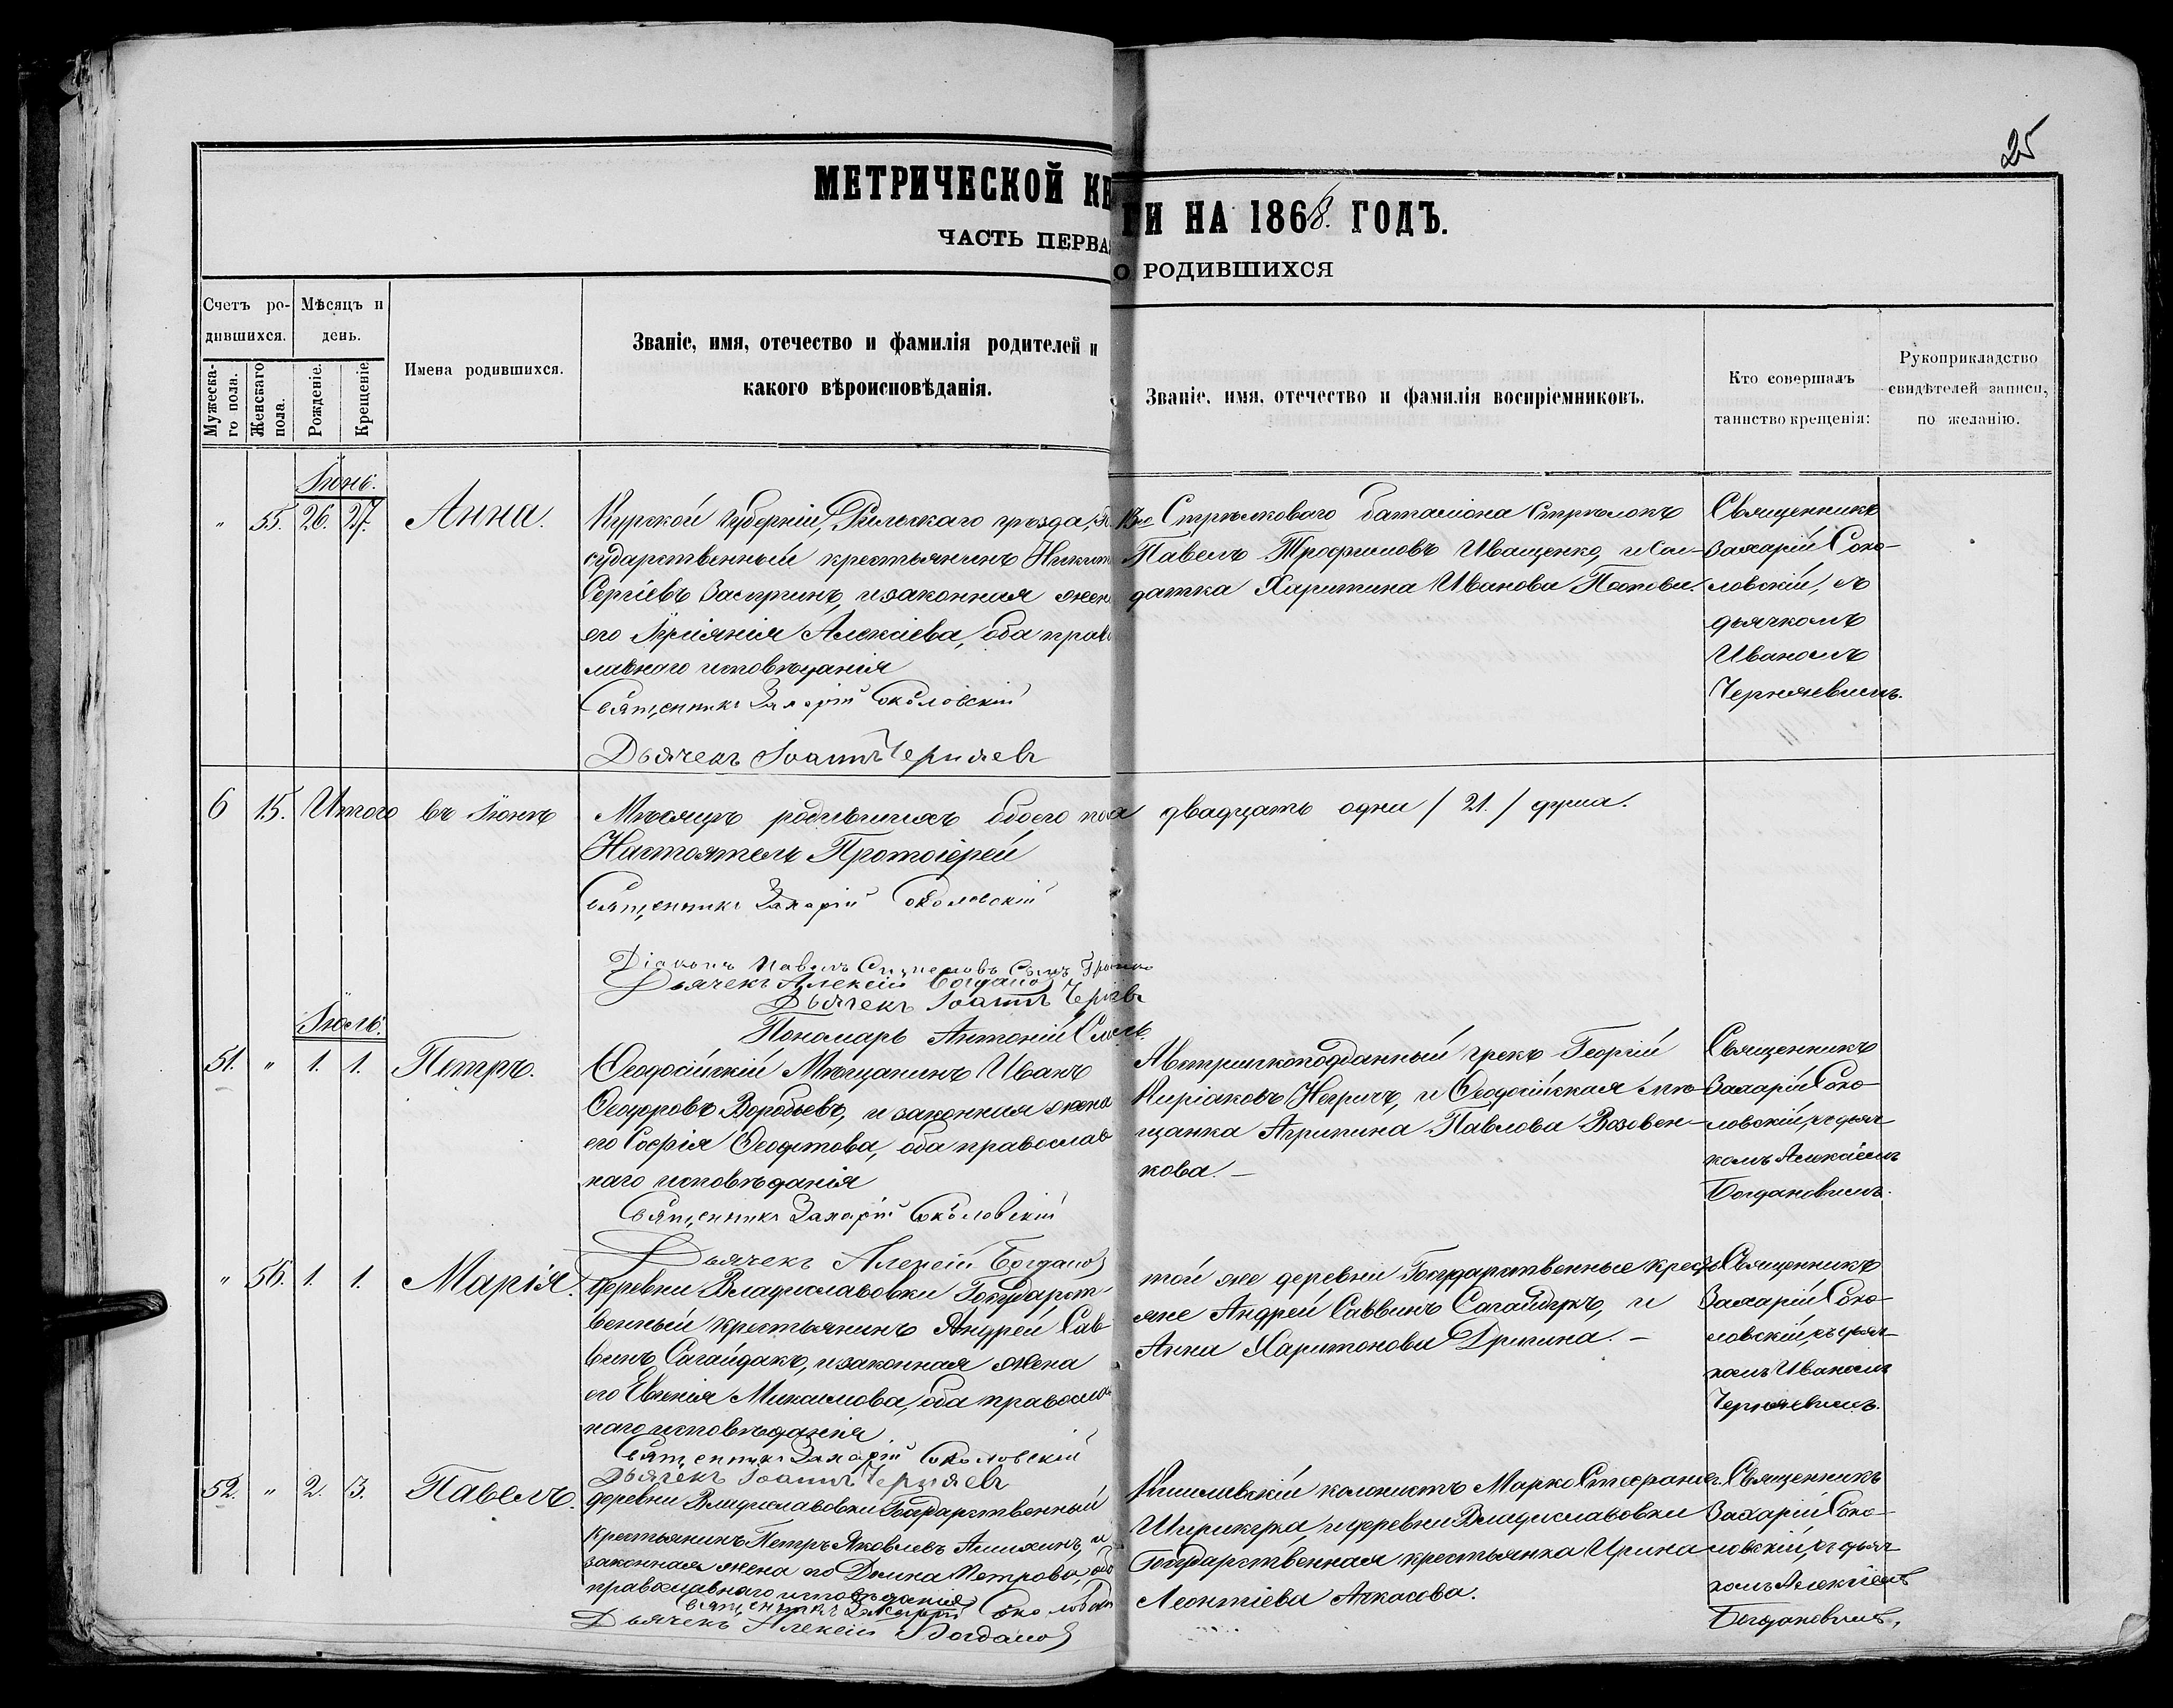 25
МЕТРИЧЕСКОЙ КН
ГИ НА 1868. ГОДЪ.
ЧАСТЬ ПЕРВАЯ
О РОДИВШИХСЯ
Счетъ ро-
дившихся.
Мужеска-
го пола.
Женскаго
пола.
Мѣсяцъ и
день.
Рожденіе.
Крещеніе.
Имена родившихся.
Званіе, имя, отечество и фамилія родителей и
какого вѣроисповѣданія.
Званіе, имя, отечество и фамилія воспріемниковъ.
Кто совершалъ
таинство крещенія:
Рукоприкладство
свидѣтелей записи,
по желанію.
Іюнь.
" 55. 26. 27. Анна.
Курской губерніи, Рильскаго уѣзда, Го
сударственный крестьянинъ Никит
Сергіевъ и законная жена
его Алексіева, оба право
лавнаго исповѣданія
Священникъ Захарій Соколовскій
Дьячекъ Іоаннъ Черняевъ
Стрѣлковаго баталіона Стрѣлокъ
Павелъ Трофимовъ Иващенко, и Сол-
датка Харитина Иванова Попова.
Священникъ
Захарій Соко-
ловскій, съ
дьячкомъ
Иваномъ
Черняевымъ.
6 15. Итого въ Іюнѣ Мѣсяцѣ родившихся обоего пола двадцать одна / 21. / душа.
Настоятель Протоіерей
Священникъ Захарій Соколовскій
Діаконъ Павелъ
Дьячекъ Алексій Богданов
Дьячекъ Іоаннъ
Пономарь Антоній
Іюль.
51. " 1. 1. Петръ.
Ѳеодосійскій Мѣщанинъ Иванъ
Ѳеодоровъ Воробьевъ, и законная жена
его Софія Ѳеодотова, оба православ
наго исповѣданія
Священникъ Захарій Соколовскій
Дьячекъ Алексій Богданов
Австрійскоподданный грекъ Георгій
Киріаковъ Негричъ, и Ѳеодосійская мѣ-
щанка Агрипина Павлова Возовен-
кова. —
Священникъ
Захарій Соко-
ловскій, съ дьяч-
комъ Алексіемъ
Богдановымъ.
" 56. 1. 1. Марія.
деревни Владиславовки Государст-
венный крестьянинъ Андрей Сав
винъ Сагайдакъ, и законная жена
его Евгенія Михаилова, оба правосла
наго исповѣданія
Священникъ Захарій Соколовскій
Дьячекъ Іоаннъ Черняевъ
той же деревни Государственные крестъ
яне Андрей Саввинъ Сагайдукъ, и
Анна Харитонова —
Священникъ
Захарій Соко-
ловскій, съ дьяч-
комъ Иваномъ
Черняевымъ.
52. " 2. 3. Павелъ.
деревни Владиславовки Государственный
крестьянинъ Петръ Яковлевъ и
законная жена его Домна Петрова, оба
православнаго исповѣданія
Священникъ Захарій Соколовскій
Дьячекъ Алексій Богданов
колонистъ Марко Стефаніевъ
и деревни Владиславовки
Государственная крестьянка Ирина
Леонтіева Аткасова.
Священникъ
Захарій Соко-
ловскій, съ дьяч-
комъ Алексіемъ
Богдановымъ.